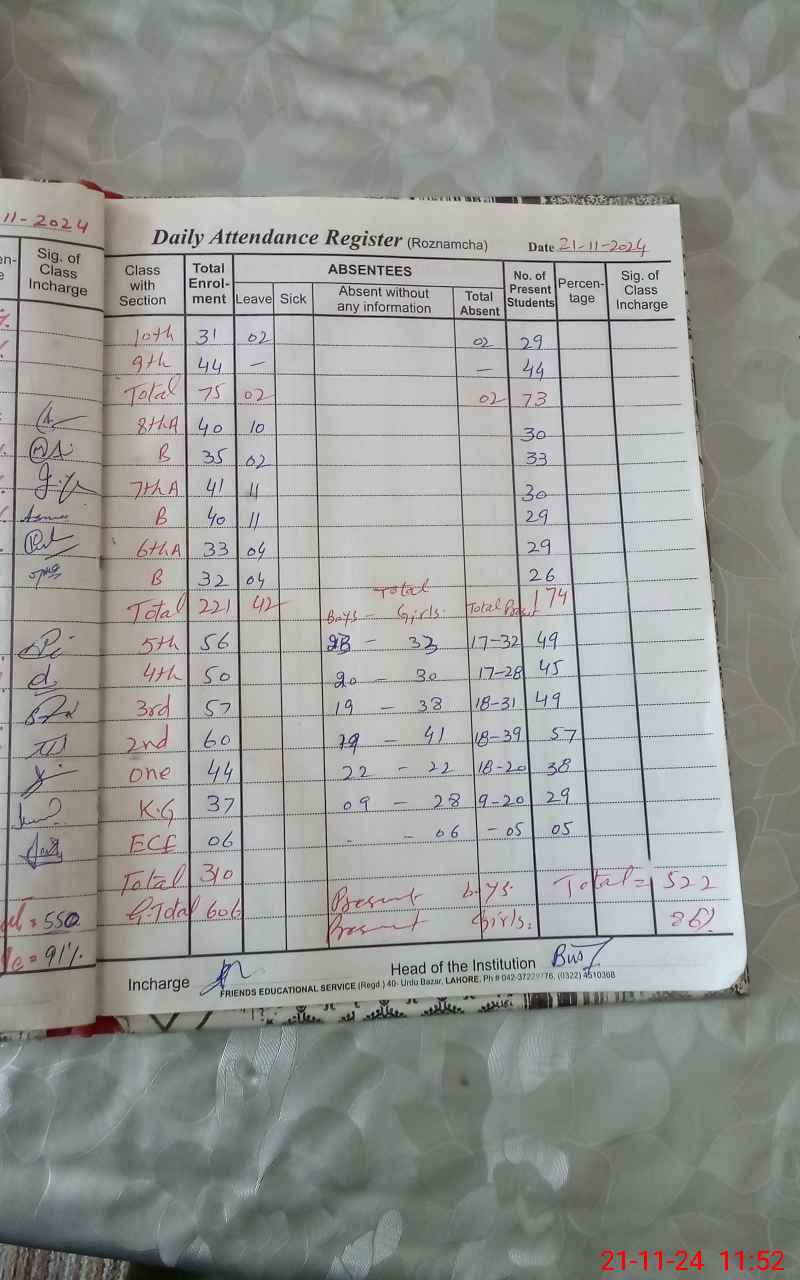 11-2024
Sig. of
Class
Incharge
= 550
= 91%
Daily Attendance Register (Roznamcha) Date 21-11-2024
Class with Section Total Enrol-ment ABSENTEES Leave Sick Absent without any information Total Absent No. of Present Students Percen-tage Sig. of Class Incharge
10th 31 02 02 29
9th 44 — — 44
Total 75 02 02 73
8thA 40 10 30
B 35 02 33
7thA 41 11 30
B 40 11 29
6thA 33 04 29
B 32 04 26
Total
Total 221 42 Boys - Girls. Total 174
5th 56 - 33 17-32 49
4th 50 20 - 30 17-28 45
3rd 57 19 - 38 18-31 49
2nd 60 19 - 41 18-39 57
one 44 22 - 22 18-20 38
K.G 37 09 - 28 9-20 29
ECE 06 - - 06 - 05 05
Total 310 Present boys. Total = 522
G.Total 606 Present Girls. 86%
Incharge Head of the Institution
FRIENDS EDUCATIONAL SERVICE (Regd.) 40- Urdu Bazar, LAHORE. Ph # 042-37229776, (0322) 4510308
21-11-24 11:52